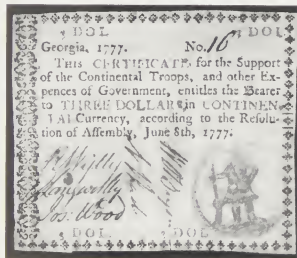 DOL DOL
Georgia, 1777. No. 16
THIS CERTIFICATE, for the Support
of the Continental Troops, and other Ex-
pences of Government, entitles the Bearer
to THREE DOLLARS in CONTINEN
TAL Currency, according to the Resolu-
tion of Assembly, June 8th, 1777.
Wood
DOL. DOL